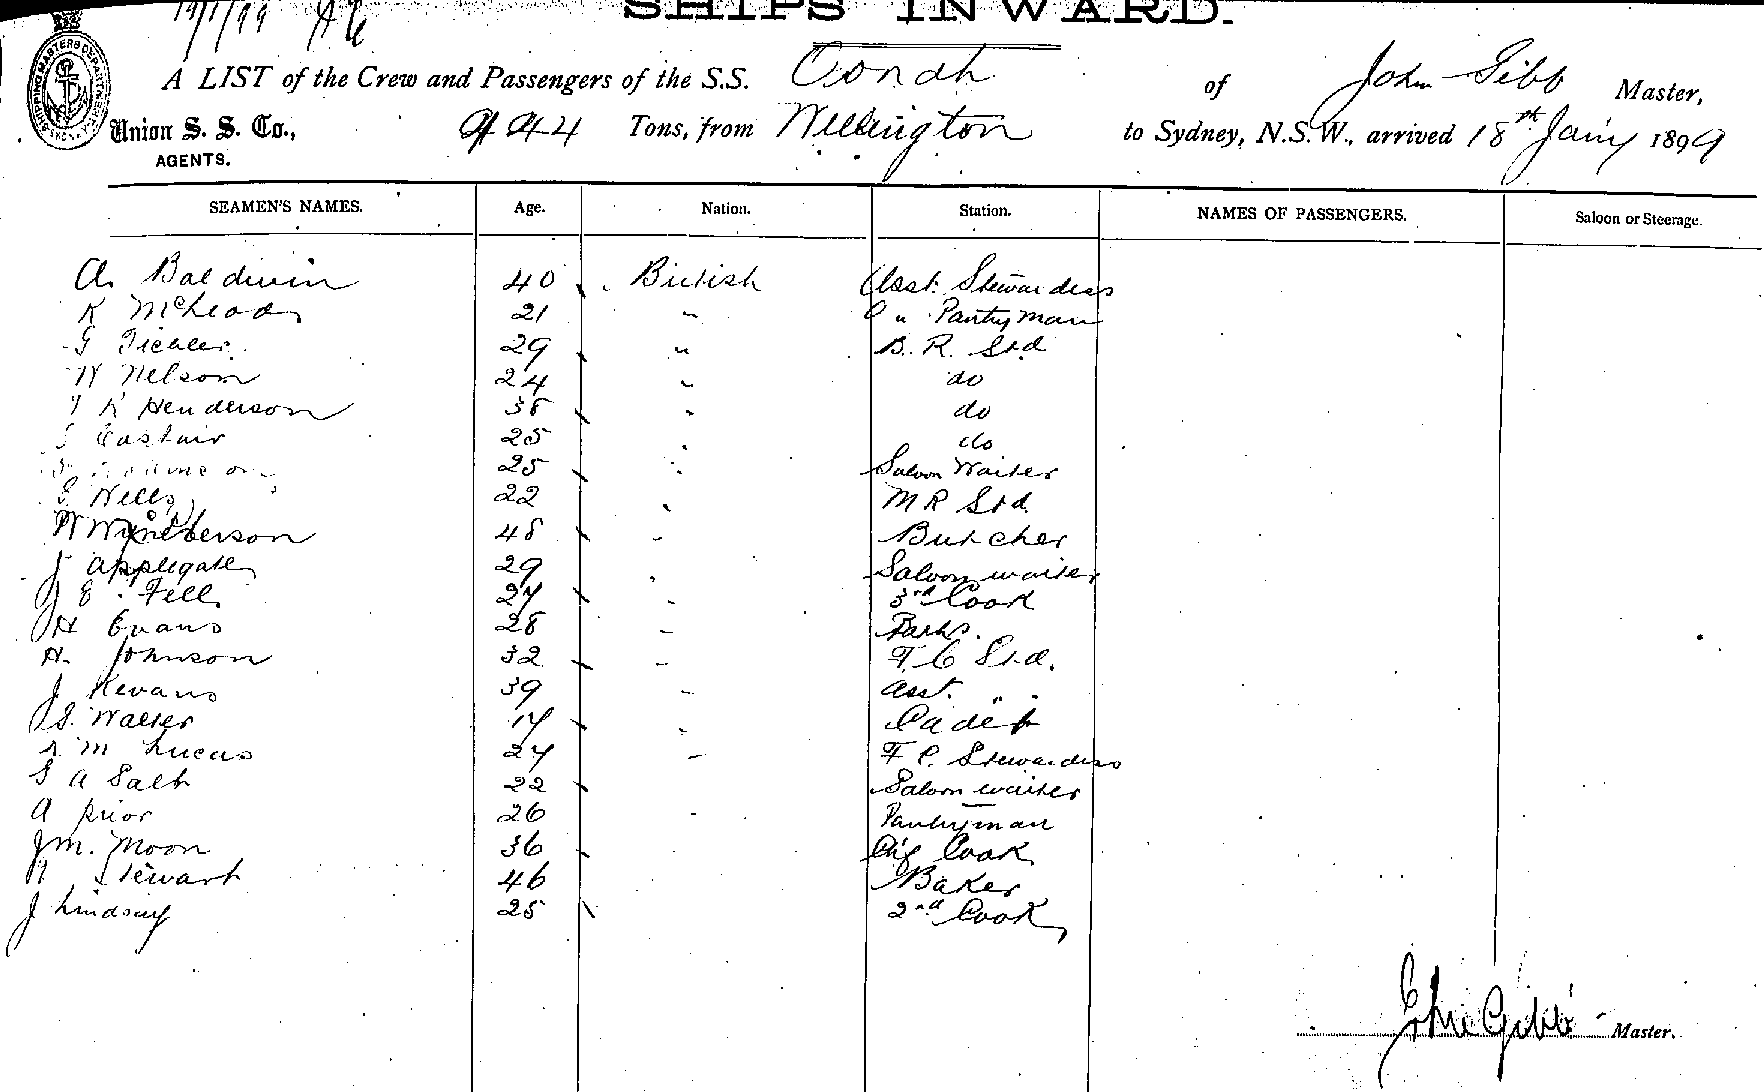 19/1/99
SHIPS INWARD.
A LIST of the Crew and Passengers of the S.S. Oonah of John Gibb Master,
Union S. S. Co., AGENTS. 944 Tons, from Wellington to Sydney, N.S.W., arrived 18th Jany 1899
SEAMEN'S NAMES. Age. Nation. Station. NAMES OF PASSENGERS. Saloon or Steerage.
A. Baldwin 40 British Asst. Stewardess
K McLeod 21 " " Pantryman
G 29 " B. R. Std
W Nelson 24 " do
K Henderson 38 " do
25 " do
25 " Saloon Waiter
E Wells 22 " M R Std.
W 48 " Butcher
J Applegate 29 " Saloon waiter
J E. Fell 27 " 3rd Cook
H Evans 28 "
H. Johnson 32 " F. C Std.
J Kevans 39 " Asst. " "
S. Walker 17 " Cadet
M Lucas 27 " F C. Stewardess
S A Salt 22 Saloon waiter
A Prior 26 " Pantryman
J M. Moon 36 Chf Cook
Stewart 46 Baker
J Lindsay 25 2nd Cook
John Gibb Master.